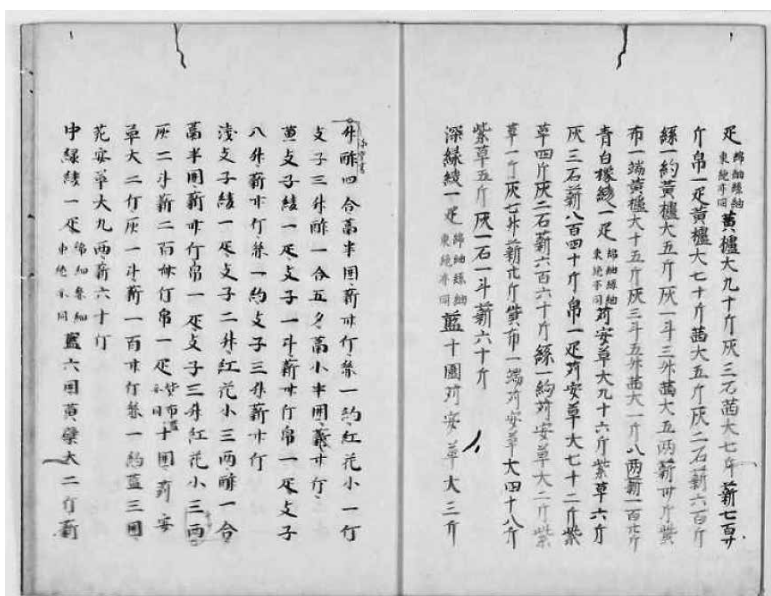 疋綿紬絲紬東絁亦同黄櫨大九十斤灰三石茜大七斤薪七百廿
斤帛一疋黄櫨大七十斤茜大五斤灰二石薪六百斤
絲一絇黄櫨大五斤灰一斗三升茜大五両薪卅斤貲
布一端黄櫨大十五斤灰三斗五升茜大一斤八両薪一百卅斤
青白橡綾一疋綿紬絲紬東絁亦同苅安草大九十六斤紫草六斤
灰三石薪八百四十斤帛一疋苅安草大七十二斤紫
草四斤灰二石薪六百六十斤絲一絇苅安草大二斤紫
草一斤灰七升薪卅斤貲布一端苅安草大四十八斤
紫草五斤灰一石一斗薪六十斤
深緑綾一疋綿紬絲紬東絁亦同藍十圍苅安草大三斤
升酢四合藁半圍薪卅斤絲一絇紅花小一斤
支子三升酢一合五夕藁小半圍薪卅斤
黄支子綾一疋支子一斗薪卅斤帛一疋支子
八升薪卅斤絲一絇支子三升薪卅斤
淺支子綾一疋支子二升紅花小三両酢一合
藁半圍薪卅斤帛一疋支子三升紅花小三両
灰二斗薪二百卌斤帛一疋貲布亦同十圍苅安
草大二斤灰一斗薪一百卅斤絲一絇藍三圍
苅安草大九両薪六十斤
中緑綾一疋綿紬絲紬東絁亦同藍六圍黄蘗大二斤薪